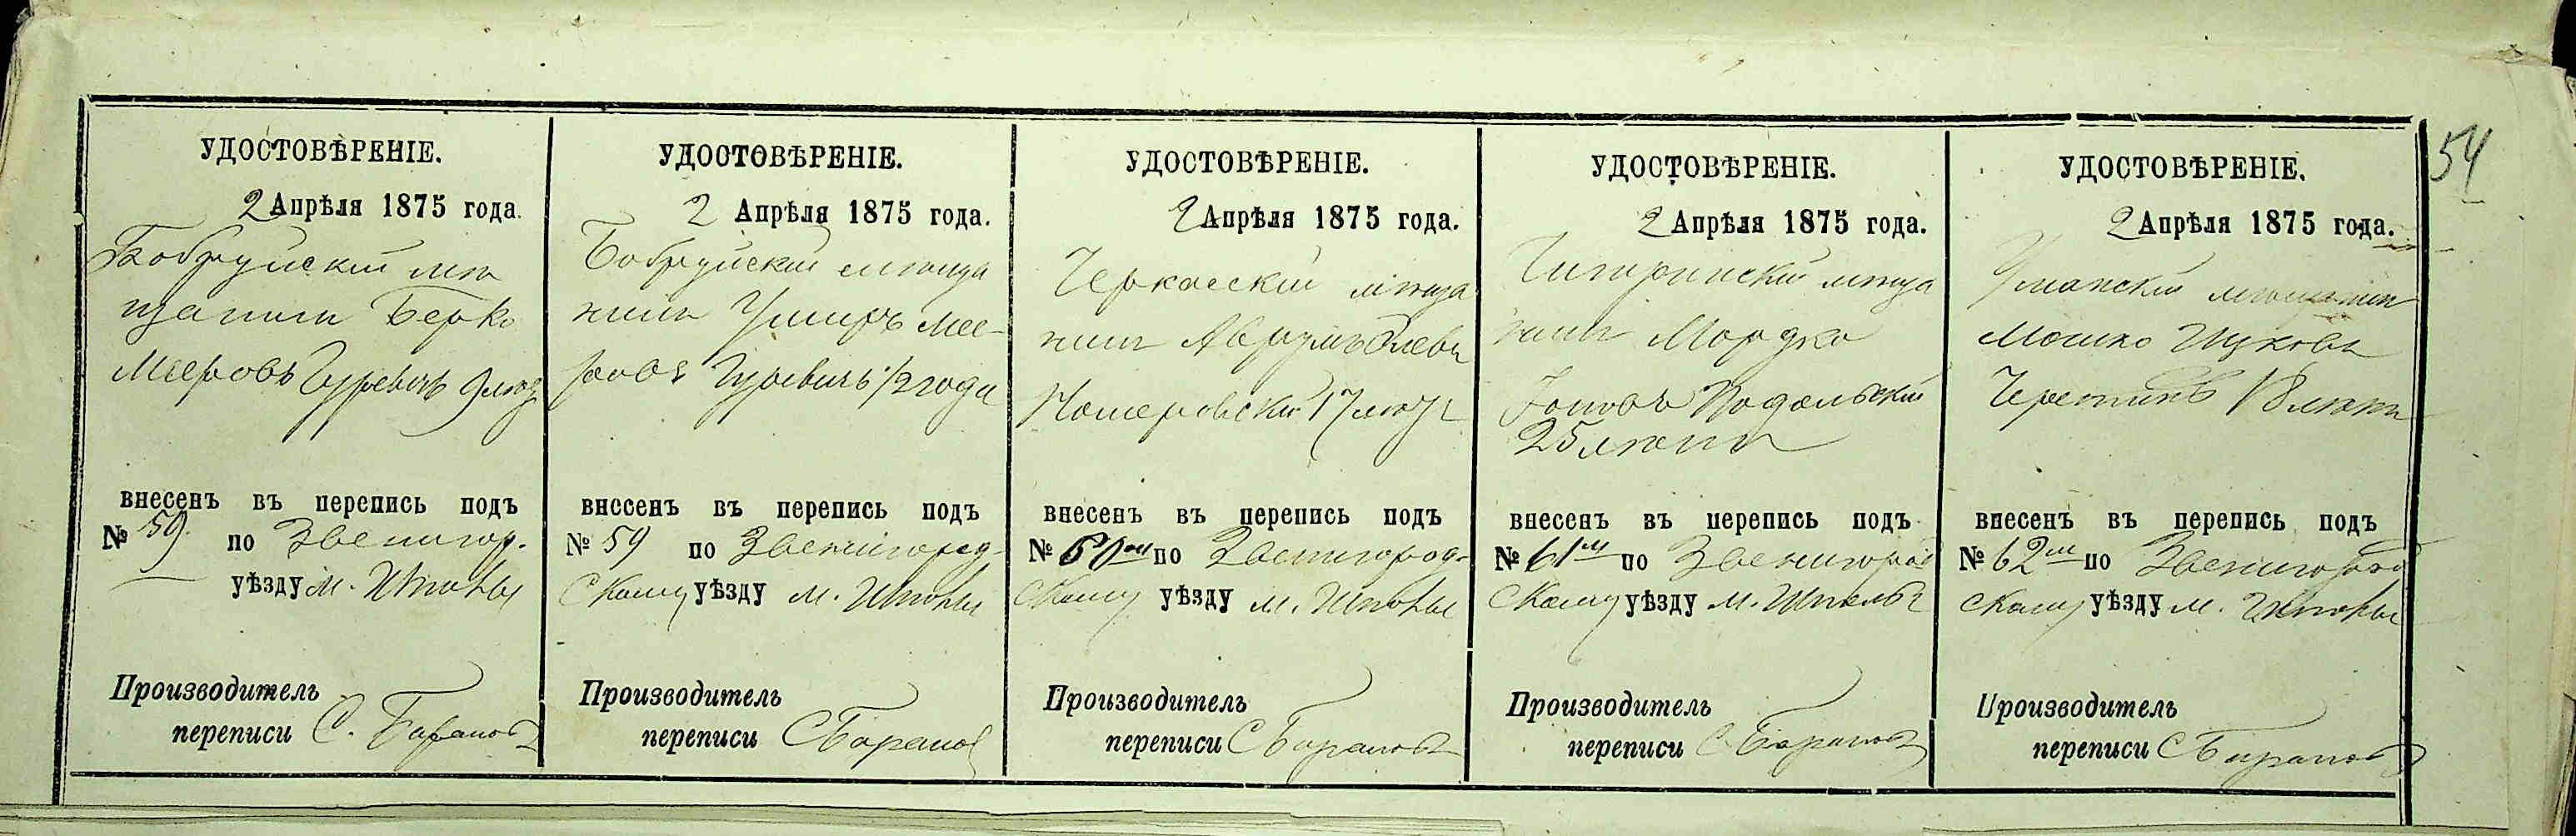 54
УДОСТОВѢРЕНІЕ.
2 Апрѣля 1875 года.
Бобруйскій мѣ
щанинъ Берко
Мееровъ Гуревичъ 9 лѣтъ
внесенъ въ перепись подъ
№ 59 по Звенигор.
уѣзду м. Шполы
Производитель
переписи С. Барановъ
УДОСТОВѢРЕНІЕ.
2 Апрѣля 1875 года.
Бобруйскій мѣща
нинъ Умиръ Мее-
ровъ Гуревичъ 1/2 года
внесенъ въ перепись подъ
№ 59 по Звенигород-
скому уѣзду м. Шполы
Производитель
переписи С Барановъ
УДОСТОВѢРЕНІЕ.
2 Апрѣля 1875 года.
Черкасскій мѣща
нинъ Аврумъ
17 лѣтъ
внесенъ въ перепись подъ
№ 60 м по Звенигород-
скому уѣзду м. Шполы
Производитель
переписи С Барановъ
УДОСТОВѢРЕНІЕ.
2 Апрѣля 1875 года.
Чигиринскій мѣща
нинъ Мордко
Подольскій
25 лѣтъ
внесенъ въ перепись подъ
№ 61 м по Звенигород
скому уѣзду м. Шполы
Производитель
переписи С Барановъ
УДОСТОВѢРЕНІЕ.
2 Апрѣля 1875 года.
Уманскій мѣщанинъ
Мошко Ицковъ
18 лѣтъ
внесенъ въ перепись подъ
№ 62 м по Звенигород
скому уѣзду м. Шполы
Производитель
переписи С Барановъ